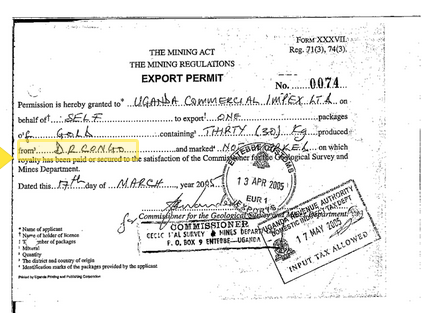 FORM XXXVII.
Reg. 71(3), 74(3).
THE MINING ACT
THE MINING REGULATIONS
EXPORT PERMIT
No. 0074
Permission is hereby granted to* UGANDA COMMERCIAL IMPEX LTD on
behalf of† SELF to export‡ ONE packages
of GOLD containing THIRTY (30) Kg produced
from D.R. CONGO and marked on which
royalty has been paid or secured to the satisfaction of the Commissioner for the Geological Survey and
Mines Department.
Dated this 17th day of MARCH, year 2005
Commissioner for the Geological Survey and Mines Department.
ENTEBBE CUSTOMS
13 APR 2005
EUR 1
EXPORTS
COMMISSIONER
GEOLOGICAL SURVEY & MINES DEPART
P. O. BOX 9 ENTEBBE-UGANDA
UGANDA REVENUE AUTHORITY
DOMESTIC TAX DEPT
17 MAY 2005
INPUT TAX ALLOWED
* Name of applicant
† Name of holder of licence
‡ Number of packages
Mineral
Quantity
The district and country of origin
Identification marks of the packages provided by the applicant
Printed by Uganda Printing and Publishing Corporation